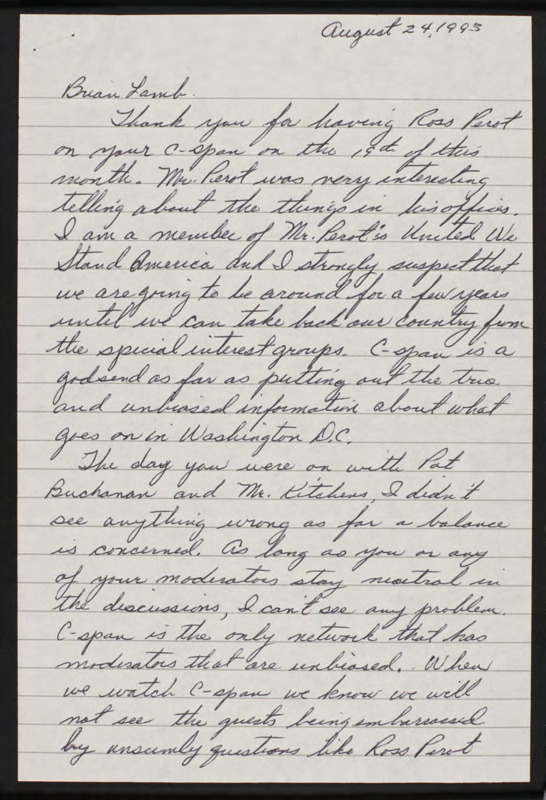 August 24, 1995
Brian Lamb.
Thank you for having Ross Perot
on your C-span on the 19th of this
month. Mr. Perot was very interesting
telling about the things in his offices.
I am a member of Mr. Perot's United We
Stand America and I strongly suspect that
we are going to be around for a few years
until we can take back our country from
the special interest groups. C-span is a
godsend as far as putting out the true
and unbiased information about what
goes on in Washington D.C.
The day you were on with Pat
Buchanan and Mr. Kitchens, I didn't
see anything wrong as far a balance
is concerned. As long as you or any
of your moderators stay neutral in
the discussions, I can't see any problem.
C-span is the only network that has
moderators that are unbiased. When
we watch C-span we know we will
not see the guests being embarrassed
by unseemly questions like Ross Perot